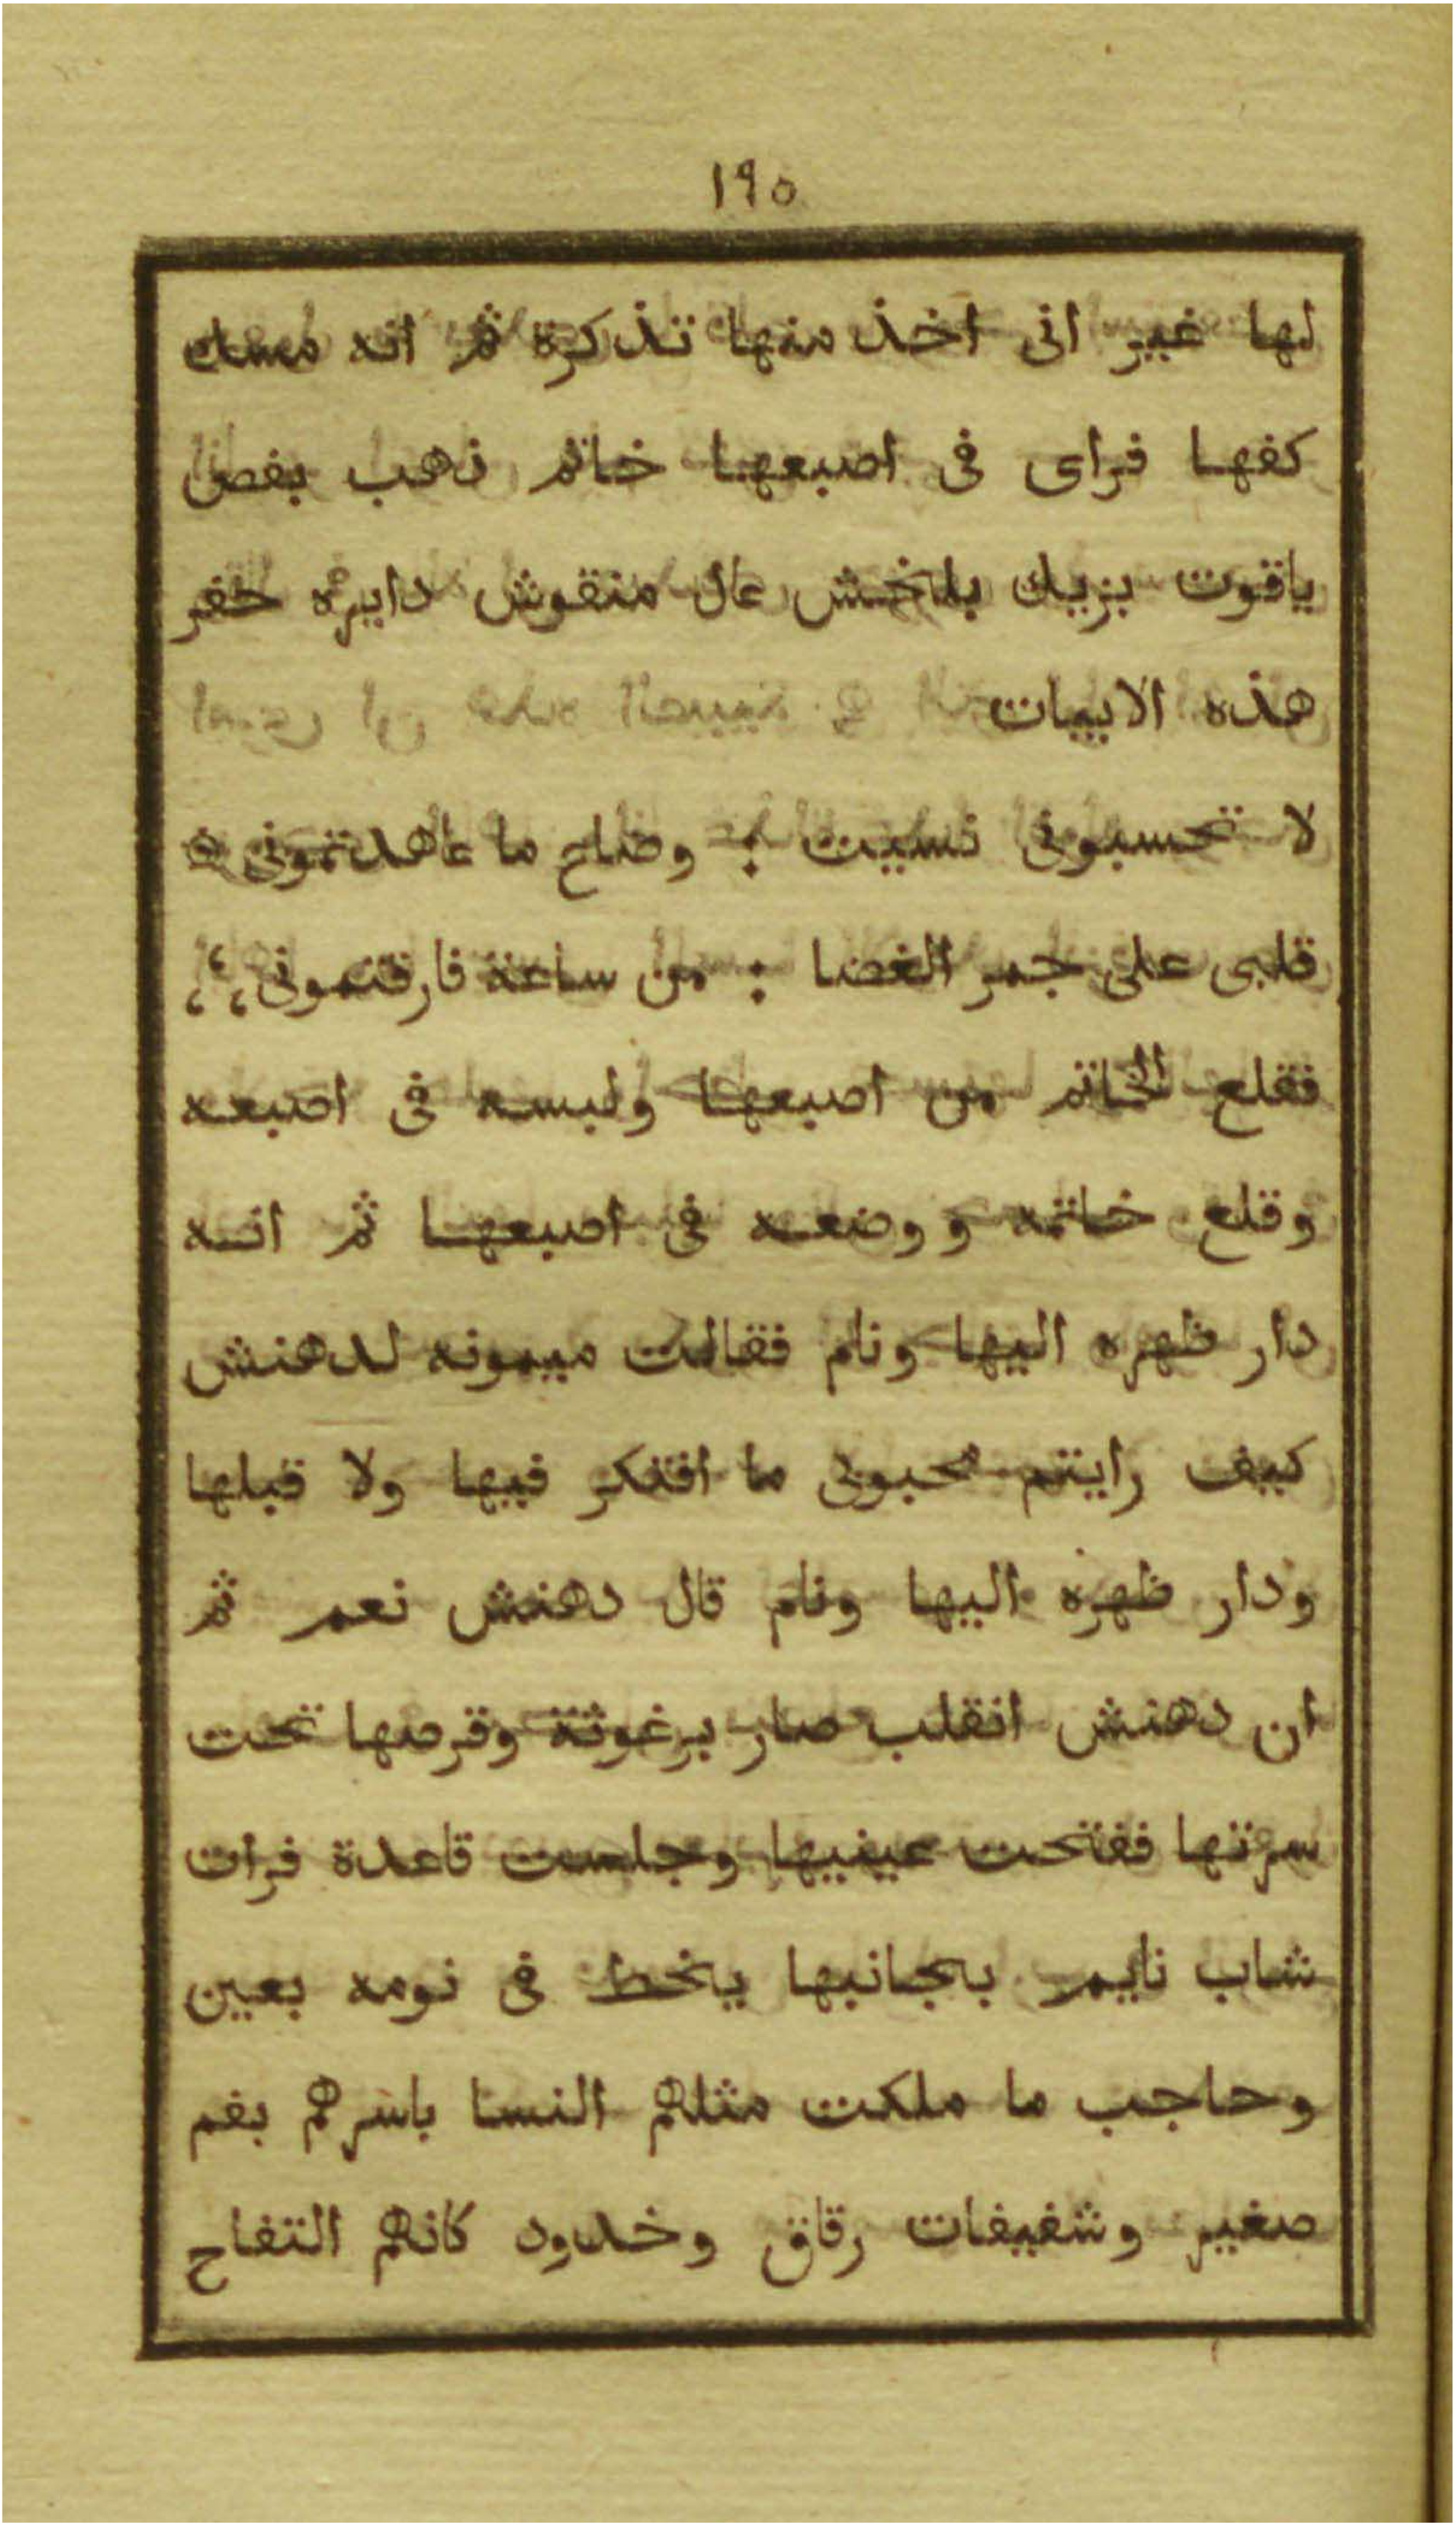 ١٩٥
لها غير انى اخذ منها تذكرة ثم انه مسك
كفها فراى فى اصبعها خاتم ذهب بفص
ياقوت بزيك بلخش عال منقوش دايره حفر
هذه الابيات
لا تحسبونى نسيت : وضاع ما عاهدتمونى ه
قلبى على جمر الغضا : من ساعة فارقتمونى ؛ ؛
فقلع الخاتم من اصبعها ولبسه فى اصبعه
وقلع خاتمه ووضعه فى اصبعها ثم انه
دار ظهره اليها ونام فقالت ميمونه لدهنش
كيف رايتم محبوبى ما افتكر فيها ولا قبلها
ودار ظهره اليها ونام قال دهنش نعم ثم
ان دهنش انقلب صار برغوثة وقرصها تحت
سرتها ففتحت عينيها وجلست قاعدة فرات
شاب نايم بجانبها يخط فى نومه بعين
وحاجب ما ملكت مثلهم النسا باسرهم بفم
صغير وشفيفات رقاق وخدود كانهم التفاح